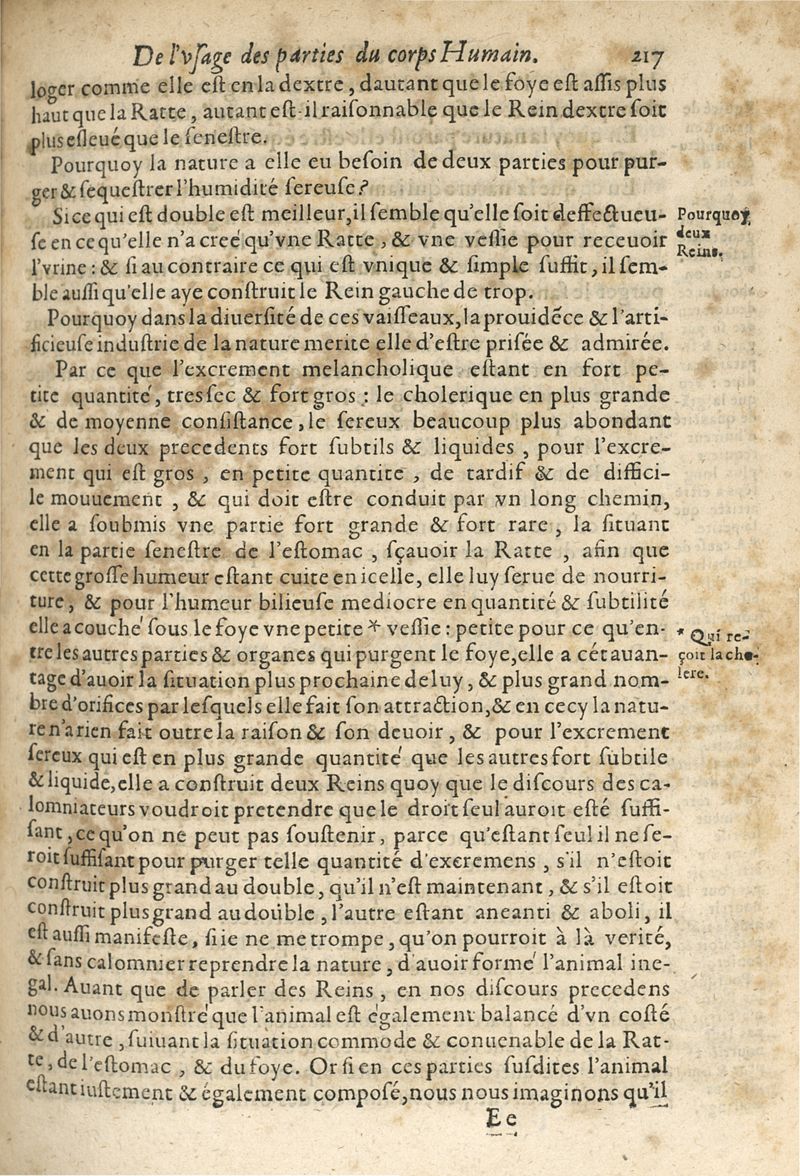 De l'vſage des parties du corps Humain. 217
loger comme elle eſt en la dextre, dautant que le foye eſt aſſis plus
haut que la Ratte, autant eſt-il raiſonnable que le Rein dextre ſoit
plus eſleué que le ſeneſtre.
Pourquoy la nature a elle eu beſoin de deux parties pour pur-
ger & ſequeſtrer l'humidité ſereuſe?
Si ce qui eſt double eſt meilleur, il ſemble qu'elle ſoit deffectueu-
ſe en ce qu'elle n'a creé qu'vne Ratte, & vne veſſie pour receuoir
l'vrine: & ſi au contraire ce qui eſt vnique & ſimple ſuffit, il ſem-
ble auſſi qu'elle aye conſtruit le Rein gauche de trop.
Pourquoy deux
Reins.
Pourquoy dans la diuerſité de ces vaiſſeaux, la prouidẽce & l'arti-
ficieuſe induſtrie de la nature merite elle d'eſtre priſée & admirée.
Par ce que l'excrement melancholique eſtant en fort pe-
tite quantité, tres ſec & fort gros: le cholerique en plus grande
& de moyenne conſiſtance, le ſereux beaucoup plus abondant
que les deux precedents fort ſubtils & liquides, pour l'excre-
ment qui eſt gros, en petite quantite, de tardif & de diffici-
le mouuement, & qui doit eſtre conduit par vn long chemin,
elle a ſoubmis vne partie fort grande & fort rare, la ſituant
en la partie ſeneſtre de l'eſtomac, ſçauoir la Ratte, afin que
cette groſſe humeur eſtant cuite en icelle, elle luy ſerue de nourri-
ture, & pour l'humeur bilieuſe mediocre en quantité & ſubtilité
elle a couché ſous le foye vne petite * veſſie: petite pour ce qu'en-
tre les autres parties & organes qui purgent le foye, elle a cét auan-
tage d'auoir la ſituation plus prochaine de luy, & plus grand nom-
* Qui re-
çoit la cho-
lere.
bre d'orifices par leſquels elle fait ſon attraction, & en cecy la natu-
re n'a rien fait outre la raiſon & ſon deuoir, & pour l'excrement
ſereux qui eſt en plus grande quantité que les autres fort ſubtile
& liquide, elle a conſtruit deux Reins quoy que le diſcours des ca-
lomniateurs voudroit pretendre que le droit ſeul auroit eſté ſuffi-
ſant, ce qu'on ne peut pas ſouſtenir, parce qu'eſtant ſeul il ne ſe-
roit ſuffiſant pour purger telle quantité d'excremens, s'il n'eſtoit
conſtruit plus grand au double, qu'il n'eſt maintenant, & s'il eſtoit
conſtruit plus grand au double, l'autre eſtant aneanti & aboli, il
eſt auſſi manifeſte, ſi ie ne me trompe, qu'on pourroit à là verité,
& ſans calomnier reprendre la nature, d'auoir formé l'animal ine-
gal. Auant que de parler des Reins, en nos diſcours precedens
nous auons monſtré que l'animal eſt également balancé d'vn coſté
& d'autre, ſuiuant la ſituation commode & conuenable de la Rat-
te, de l'eſtomac, & du foye. Or ſi en ces parties ſuſdites l'animal
eſtant iuſtement & également compoſé, nous nous imaginons qu'il
Ee